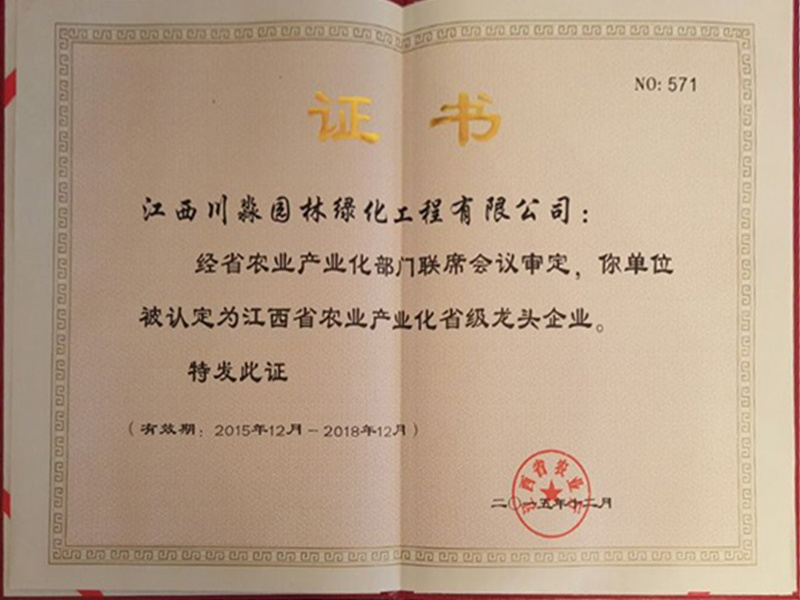 NO: 571
证书
江西川淼园林绿化工程有限公司：
经省农业产业化部门联席会议审定，你单位
被认定为江西省农业产业化省级龙头企业。
特发此证
（有效期：2015年12月－2018年12月）
江西省农业厅
二〇一五年十二月